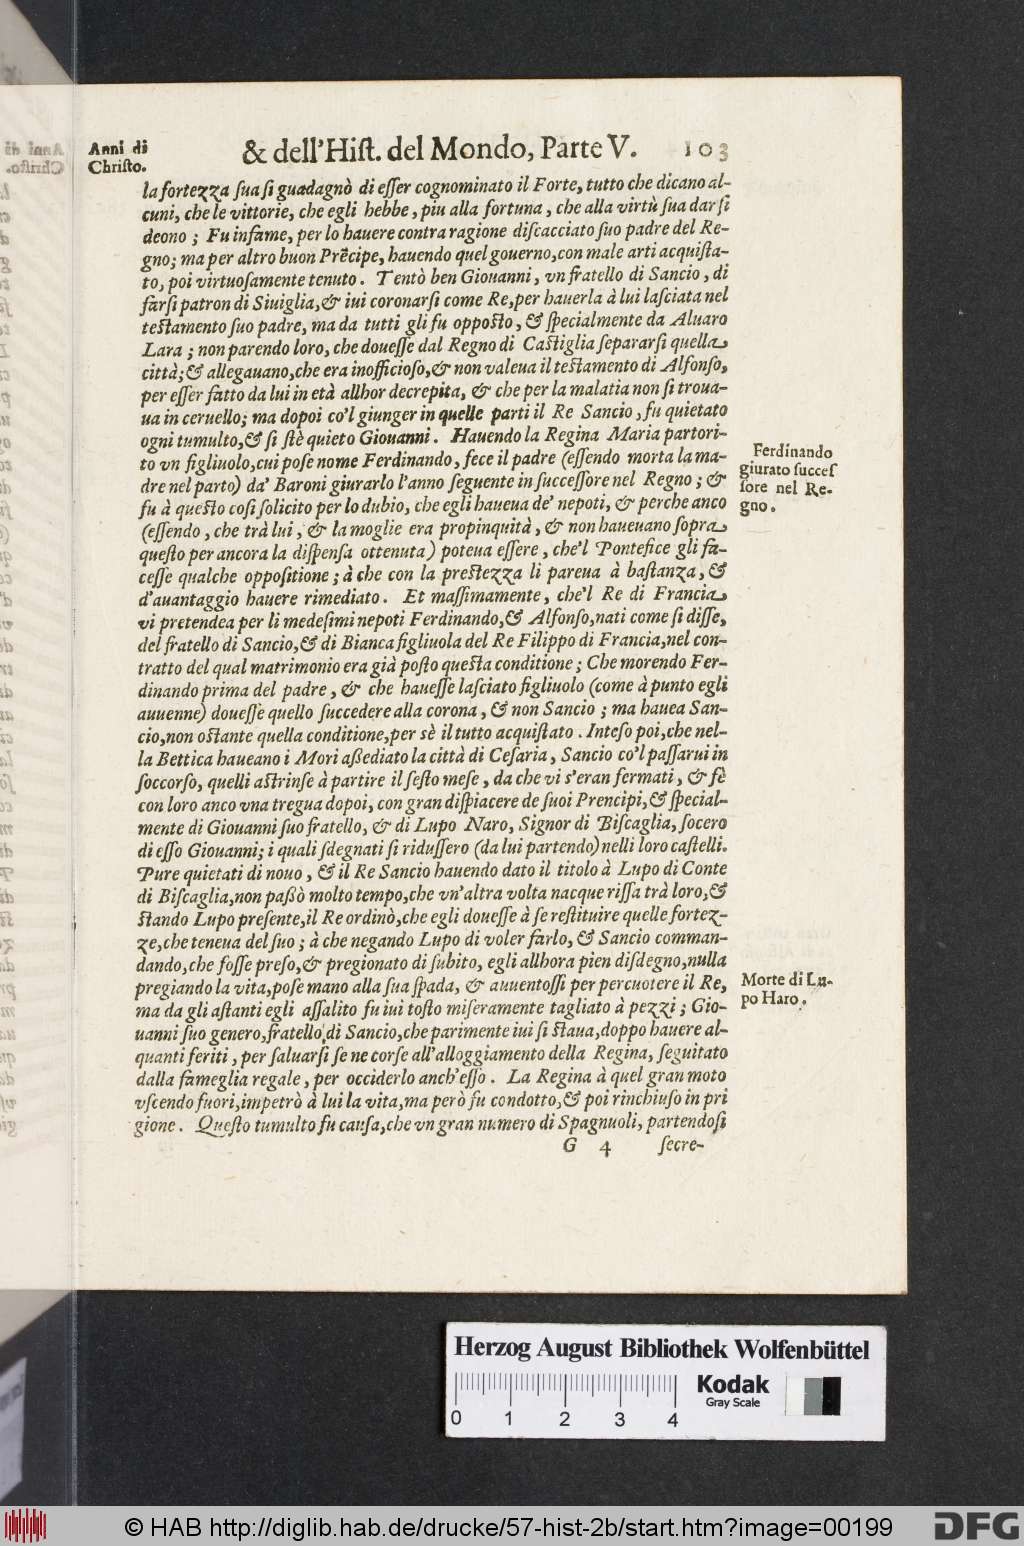 Anni di
Christo.
& dell'Hiſt. del Mondo, Parte V. 103
la fortezza ſua ſi guadagnò di eſſer cognominato il Forte, tutto che dicano al-
cuni, che le vittorie, che egli hebbe, piu alla fortuna, che alla virtù ſua dar ſi
deono; Fu infame, per lo hauere contra ragione diſcacciato ſuo padre del Re-
gno; ma per altro buon Prẽcipe, hauendo quel gouerno, con male arti acquiſta-
to, poi virtuoſamente tenuto. Tentò ben Giouanni, vn fratello di Sancio, di
farſi patron di Siuiglia, & iui coronarſi come Re, per hauerla à lui laſciata nel
teſtamento ſuo padre, ma da tutti gli fu oppoſto, & ſpecialmente da Aluaro
Lara; non parendo loro, che doueſſe dal Regno di Caſtiglia ſepararſi quella
città; & allegauano, che era inofficioſo, & non valeua il teſtamento di Alfonſo,
per eſſer fatto da lui in età allhor decrepita, & che per la malatia non ſi troua-
ua in ceruello; ma dopoi co'l giunger in quelle parti il Re Sancio, fu quietato
ogni tumulto, & ſi ſtè quieto Giouanni. Hauendo la Regina Maria partori-
to vn figliuolo, cui poſe nome Ferdinando, fece il padre (eſſendo morta la ma-
dre nel parto) da' Baroni giurarlo l'anno ſeguente in ſucceſſore nel Regno; &
fu à queſto coſi ſolicito per lo dubio, che egli haueua de' nepoti, & perche anco
(eſſendo, che trà lui, & la moglie era propinquità, & non haueuano ſopra
queſto per ancora la diſpenſa ottenuta) poteua eſſere, che'l Pontefice gli fa-
ceſſe qualche oppoſitione; à che con la preſtezza li pareua à baſtanza, &
d'auantaggio hauere rimediato. Et maſſimamente, che'l Re di Francia
vi pretendea per li medeſimi nepoti Ferdinando, & Alfonſo, nati come ſi diſſe,
del fratello di Sancio, & di Bianca figliuola del Re Filippo di Francia, nel con-
tratto del qual matrimonio era già poſto queſta conditione; Che morendo Fer-
dinando prima del padre, & che haueſſe laſciato figliuolo (come à punto egli
auuenne) doueſſe quello ſuccedere alla corona, & non Sancio; ma hauea San-
cio, non oſtante quella conditione, per sè il tutto acquiſtato. Inteſo poi, che nel-
la Bettica haueano i Mori aßediato la città di Ceſaria, Sancio co'l paſſarui in
ſoccorſo, quelli aſtrinſe à partire il ſeſto meſe, da che vi s'eran fermati, & fè
con loro anco vna tregua dopoi, con gran diſpiacere de ſuoi Prencipi, & ſpecial-
mente di Giouanni ſuo fratello, & di Lupo Naro, Signor di Biſcaglia, ſocero
di eſſo Giouanni; i quali ſdegnati ſi riduſſero (da lui partendo) nelli loro caſtelli.
Pure quietati di nouo, & il Re Sancio hauendo dato il titolo à Lupo di Conte
di Biſcaglia, non paßò molto tempo, che vn'altra volta nacque riſſa trà loro, &
ſtando Lupo preſente, il Re ordinò, che egli doueſſe à ſe reſtituire quelle fortez-
ze, che teneua del ſuo; à che negando Lupo di voler farlo, & Sancio comman-
dando, che foſſe preſo, & pregionato di ſubito, egli allhora pien diſdegno, nulla
pregiando la vita, poſe mano alla ſua ſpada, & auuentoſſi per percuotere il Re,
ma da gli aſtanti egli aſſalito fu iui toſto miſeramente tagliato à pezzi; Gio-
uanni ſuo genero, fratello di Sancio, che parimente iui ſi ſtaua, doppo hauere al-
quanti feriti, per ſaluarſi ſe ne corſe all'alloggiamento della Regina, ſeguitato
dalla fameglia regale, per occiderlo anch'eſſo. La Regina à quel gran moto
vſcendo fuori, impetrò à lui la vita, ma però fu condotto, & poi rinchiuſo in pri
gione. Queſto tumulto fu cauſa, che vn gran numero di Spagnuoli, partendoſi
G 4 ſecre-
Ferdinando
giurato ſucceſ
ſore nel Re-
gno.
Morte di Lu-
po Haro.
Herzog August Bibliothek Wolfenbüttel
Kodak
Gray Scale
0 1 2 3 4
© HAB http://diglib.hab.de/drucke/57-hist-2b/start.htm?image=00199
DFG